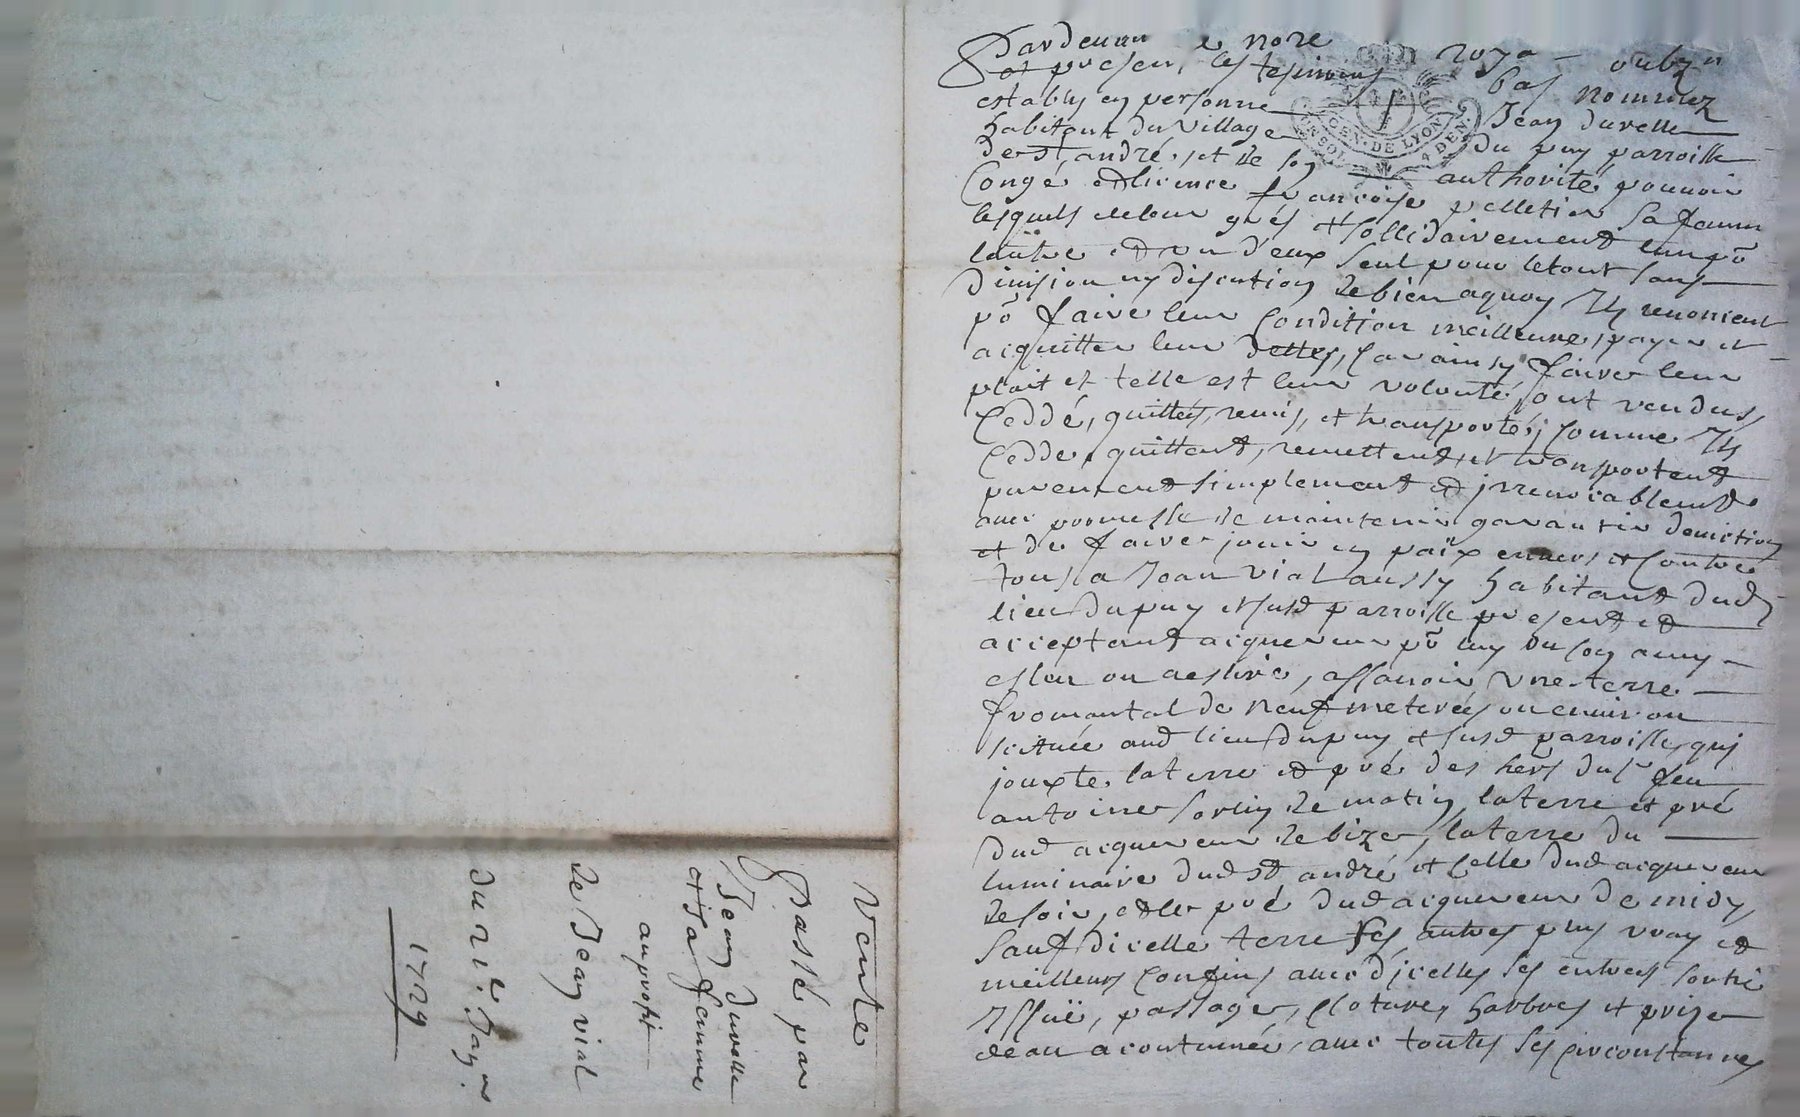 Pardevan le no.re roya soubzn
et presen, les tesmoins bas nommez
estably en personne Jean duvelle
habitant du Village du puy parroisse
de st andré, et de son authorité pouvoir
Congé et licence francoise pelletier sa femme
lesquels de leur grés et sollidairement lun pō
lautre et un d'eux seul pour le tout sans
division ny discution de bien aquoy Ils renoncent
pō faire leur Condition meilleure, payer et
acquitter leur dettes, Car ainsy faire leur
plait et telle est leur volonté, ont vendus,
Ceddé, quittés, remis, et transporté, Comme Ils
Cedde, quittent, remettent, et transportent
purement simplement et irrevocablemt
avec promesse de maintenir garantir deviction
et de faire jouir en païx envers et Contre
tous a Jean vial aussy habitant dud
lieu du puy et susd parroisse present et
acceptant acquereur pō luy ou son amy
esleu ou aeslire, assavoir Vne terre
fromantal de neuf meterées ou environ
scituée aud lieu du puy et susd parroisse qui
jouxte la terre et pré des hers du sr feu
antoine soruin de matin, la terre et pré
dud acquereur de bize, la terre du
luminaire dud st andré et Celle dud acquereur
de soir, et le pré dud acquereur de midy,
sauf dicelle terre ses autres plus vray et
meilleurs Confins avec dicelles ses entrees sortie
Issuë, passage, Cloture, harbres et prise
deau acoutumée, avec toutes ses circonstances
Vente
Passé par
Jean duvelle
et sa femme
au profit
de Jean vial
du 21e. Janer.
1729
GEN. DE LYON
4 DEN.